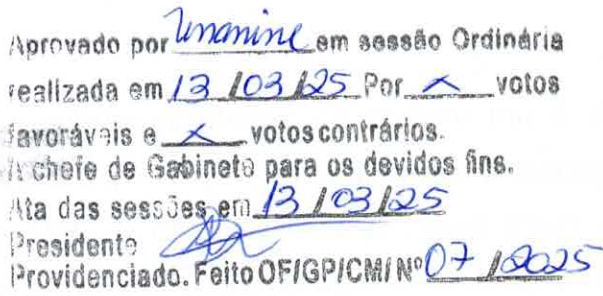 Aprovado por Unanine em sessão Ordinária
realizada em 13/03/25 Por x votos
favoráveis e x votos contrários.
A chefe de Gabinete para os devidos fins.
Ata das sessões em 13/03/25
Presidente
Providenciado. Feito OF/GP/CMI Nº 07/2025